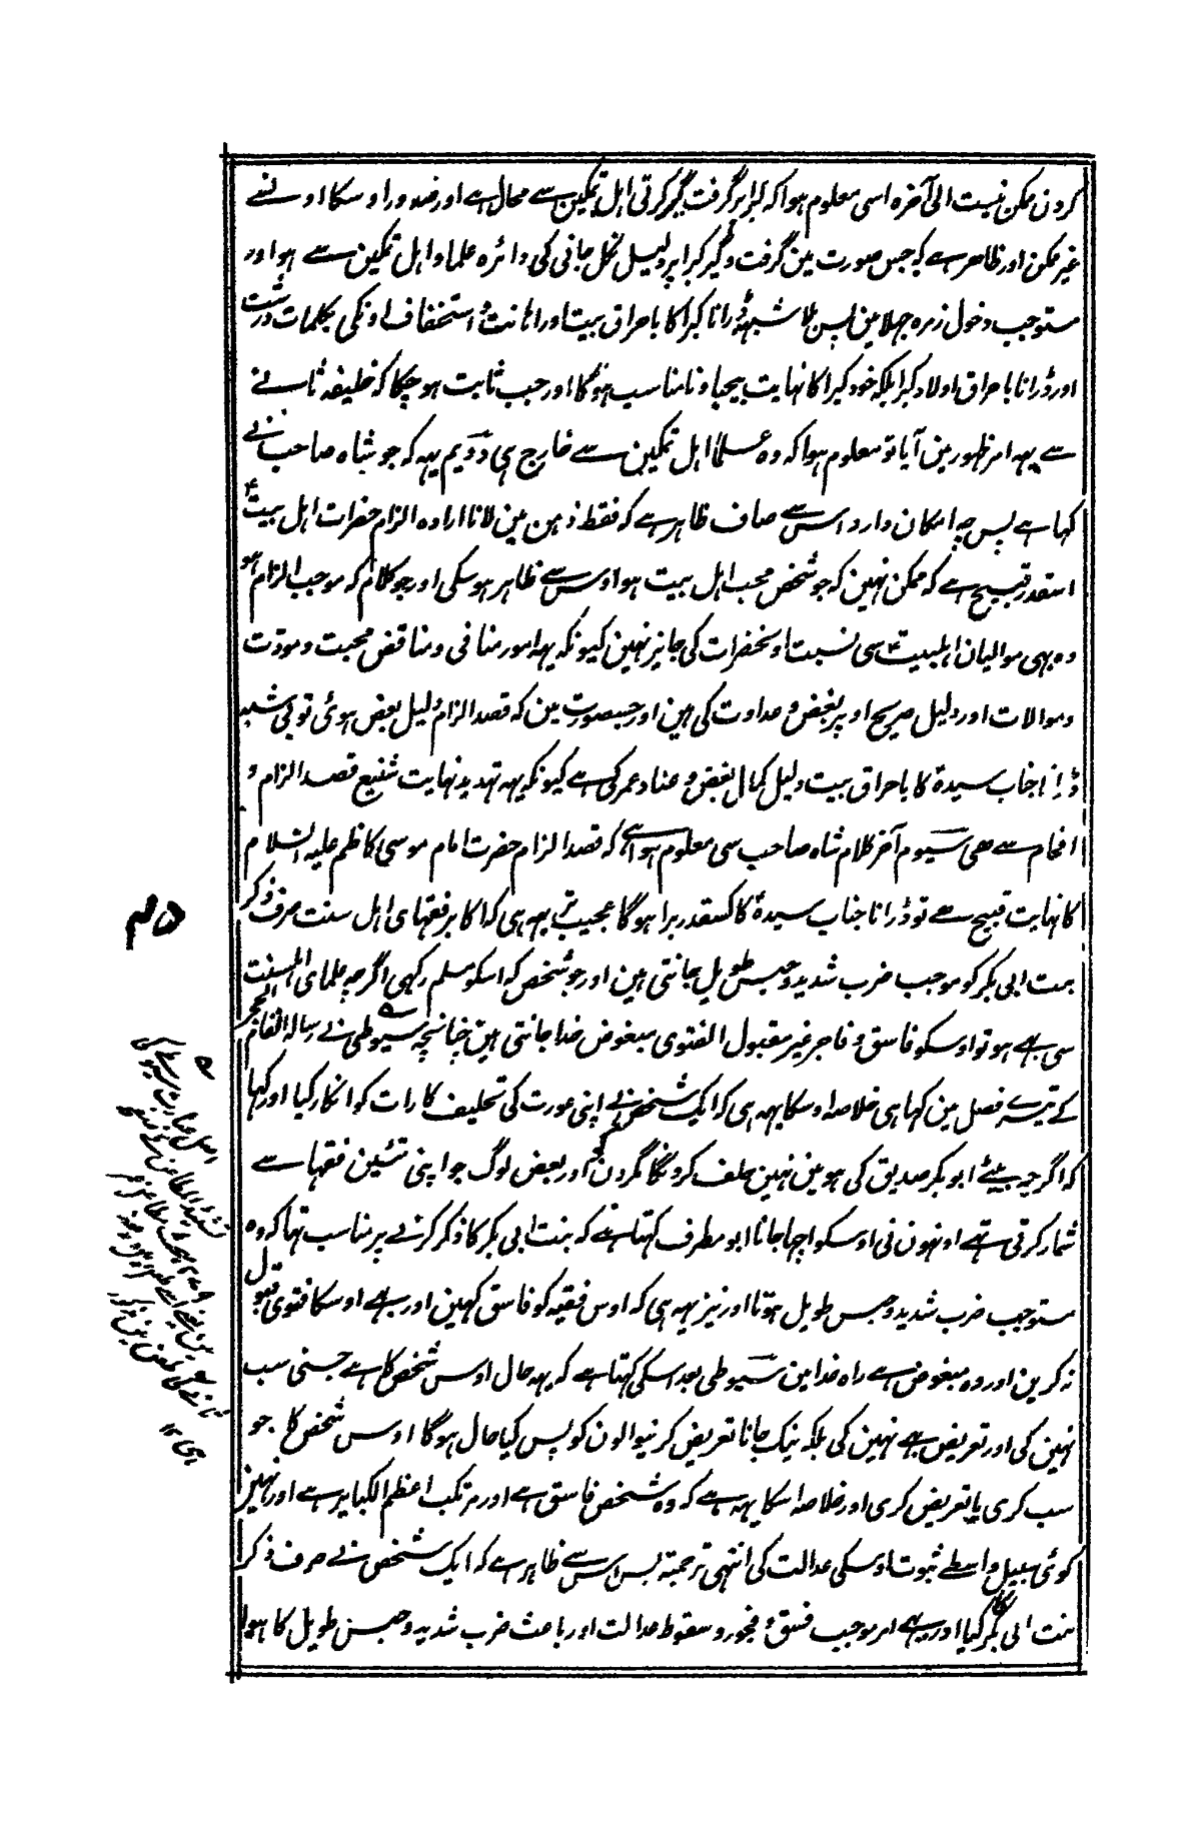 کردن ممکن نیست الی آخره اسی معلوم ہوا کہ کبرا پر گرفت گیر کرتی اہل تمکین سے محال ہے اور صدور اوسکا اونسے
غیر ممکن اور ظاہر ہے کہ جس صورت مین گرفت و گیر کبرا پر دلیل نکل جانی کی دائرہ علما و اہل تمکین سے ہو اور
مستوجب دخول زمرہ جہلا مین پس بلا شبہہ ڈرانا کبرا کا باحراق بیت اور اہانت و استخفاف اونکی بکلمات درشت
اور ڈرانا باحراق اولاد کبرا بلکہ خود کبرا کا نہایت بیجا و نامناسب ہوگا اور جب ثابت ہو چکا کہ خلیفہ ثانے
سے یہہ امر ظہور مین آیا تو معلوم ہوا کہ وہ عسلماً اہل تمکین سے خارج ہی دویم یہہ کہ جو شاہ صاحب نے
کہا ہے پس چہ امکان دارد اس سے صاف ظاہر ہے کہ فقط ذہن مین لانا ارادہ الزام حضرات اہل بیت
اسقدر قبیح ہے کہ ممکن نہین کہ جو شخص محب اہل بیت ہو اوس سے ظاہر ہو سکی اور جو کلام کہ موجب الزام ہو
وہ بہی موالیان اہلبیت سی نسبت اونحضرات کی جایز نہین کیونکہ یہہ امور منافی و مناقض محبت و مودت
و موالات اور دلیل صریح اوپر بغض و عداوت کی ہین اور جسصورت مین کہ قصد الزام دلیل بغض ہوئی تو بی شبہ
ڈرانا جناب سیدہ کا باحراق بیت دلیل کمال بغض و عناد عمر کی ہے کیونکہ یہہ تہدید نہایت شنیع قصد الزام و
افحام سے ہی سیوم آخر کلام شاہ صاحب سی معلوم ہوا ہے کہ قصد الزام حضرت امام موسی کاظم علیہ السلام
کا نہایت قبیح ہے تو ڈرانا جناب سیدہ کا کسقدر برا ہوگا عجیب تر یہہ ہی کہ اکابر فقہای اہل سنت صرف ذکر
بنت ابی بکر کو موجب ضرب شدید و حبس طویل جانتی ہین اور جو شخص کہ اسکو مسلم رکہی اگرچہ علمای اہلسنت
سی بہی ہو تو اوسکو فاسق و فاجر غیر مقبول الفتوی مبغوض خدا جانتی ہین چنانچہ سیوطی نے رسالہ القام الحجر
کے تیسرے فصل مین کہا ہی خلاصہ اوسکا یہہ ہی کہ ایک شخص نے اپنی عورت کی تحلیف کا رات کو انکار کیا اور کہا
کہ اگرچہ بیٹے ابو بکر صدیق کی ہو مین نہین حلف کرونگا مگر دن کو اور بعض لوگ جو اپنی تئین فقہا سے
شمار کرتی تہے اونہون نی اوسکو اچہا جانا ابو مطرف کہتا ہے کہ بنت ابی بکر کا ذکر کرنے پر مناسب تہا کہ وہ
مستوجب ضرب شدید و حبس طویل ہوتا اور نیز یہہ ہی کہ اوس فقیہ کو فاسق کہین اور ہے اوسکا فتوی قبول
نہ کرین اور وہ مبغوض ہے راہ خدا مین سیوطی بعد اسکی کہتا ہے کہ یہہ حال اوس شخص کا ہے جسنی سب
نہین کی اور تعریض بہی نہین کی بلکہ نیک جانا تعریض کرنیوالون کو پس کیا حال ہوگا اوس شخص کا جو
سب کری یا تعریض کری اور خلاصہ اسکا یہہ ہے کہ وہ شخص فاسق ہے اور مرتکب اعظم الکبایر ہے اور نہین
کوئی سبیل واسطے ثبوت اوسکی عدالت کی انتہی ترجمتہ پس اس سے ظاہر ہے کہ ایک شخص نے صرف ذکر
بنت ابی بکر کیا اور یہے امر موجب فسق و فجور و سقوط عدالت اور باعث ضرب شدید و حبس طویل کا ہوا
۴۵